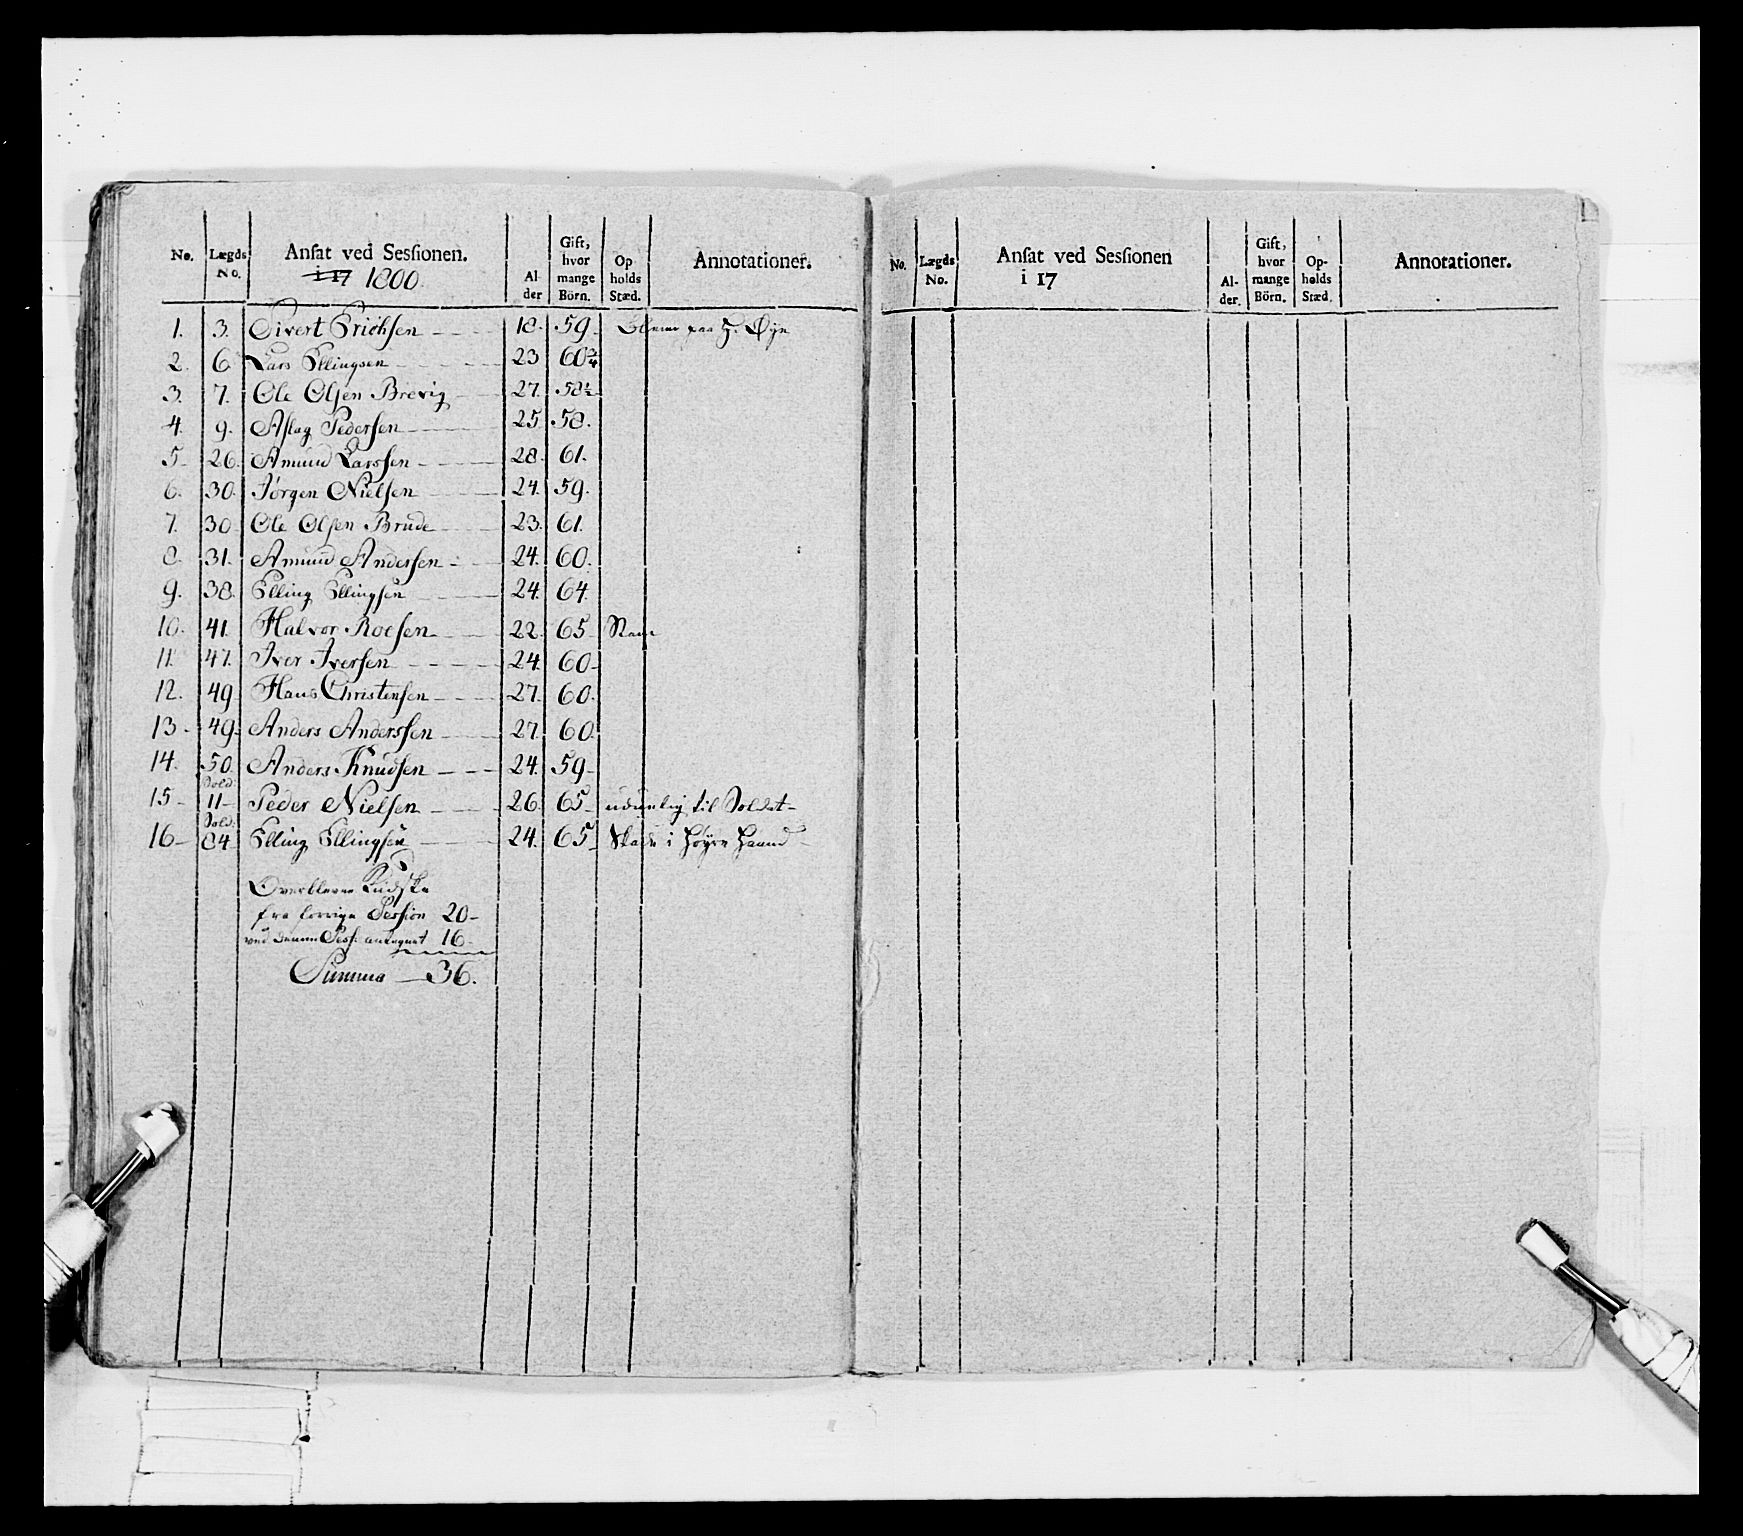 No. Lægds No. Ansat ved Sessionen. i 17 1800. Al- der Gift, hvor mange Börn. Op holds Stæd. Annotationer.
1. 3. Sivert Erichsen 18. 59. paa H. Øye
2. 6. Lars Ellingsen 23 60 3/4
3. 7. Ole Olsen Brevig 27. 58 1/2
4. 9. Aslag Pedersen 25 58.
5. 26. Amund Larssen 28. 61.
6. 30. Jörgen Nielsen 24. 59.
7. 30. Ole Olsen Brude 23. 61.
8. 31. Amund Andersen 24. 60.
9. 38. Elling Ellingsen 24. 64.
10. 41. Halvor Roesen 22. 65
11. 47. Iver Iversen 24. 60
12. 49 Hans Christensen 27. 60.
13. 49. Anders Anderssen 27. 60
14. 50. Anders Knudsen 24. 59
15 Sold: 11 Peder Nielsen 26. 65 udunlig til Soldat
16 Sold: 84 Elling Ellingsen 24. 65 Skade i höyre Haand
Overblevne Kudske
fra forrige Session 20
ved denne Sess: antegnet 16
Summa 36.
No. Lægds No. Ansat ved Sessionen i 17 Al- der. Gift, hvor mange Börn. Op- holds Stæd. Annotationer.